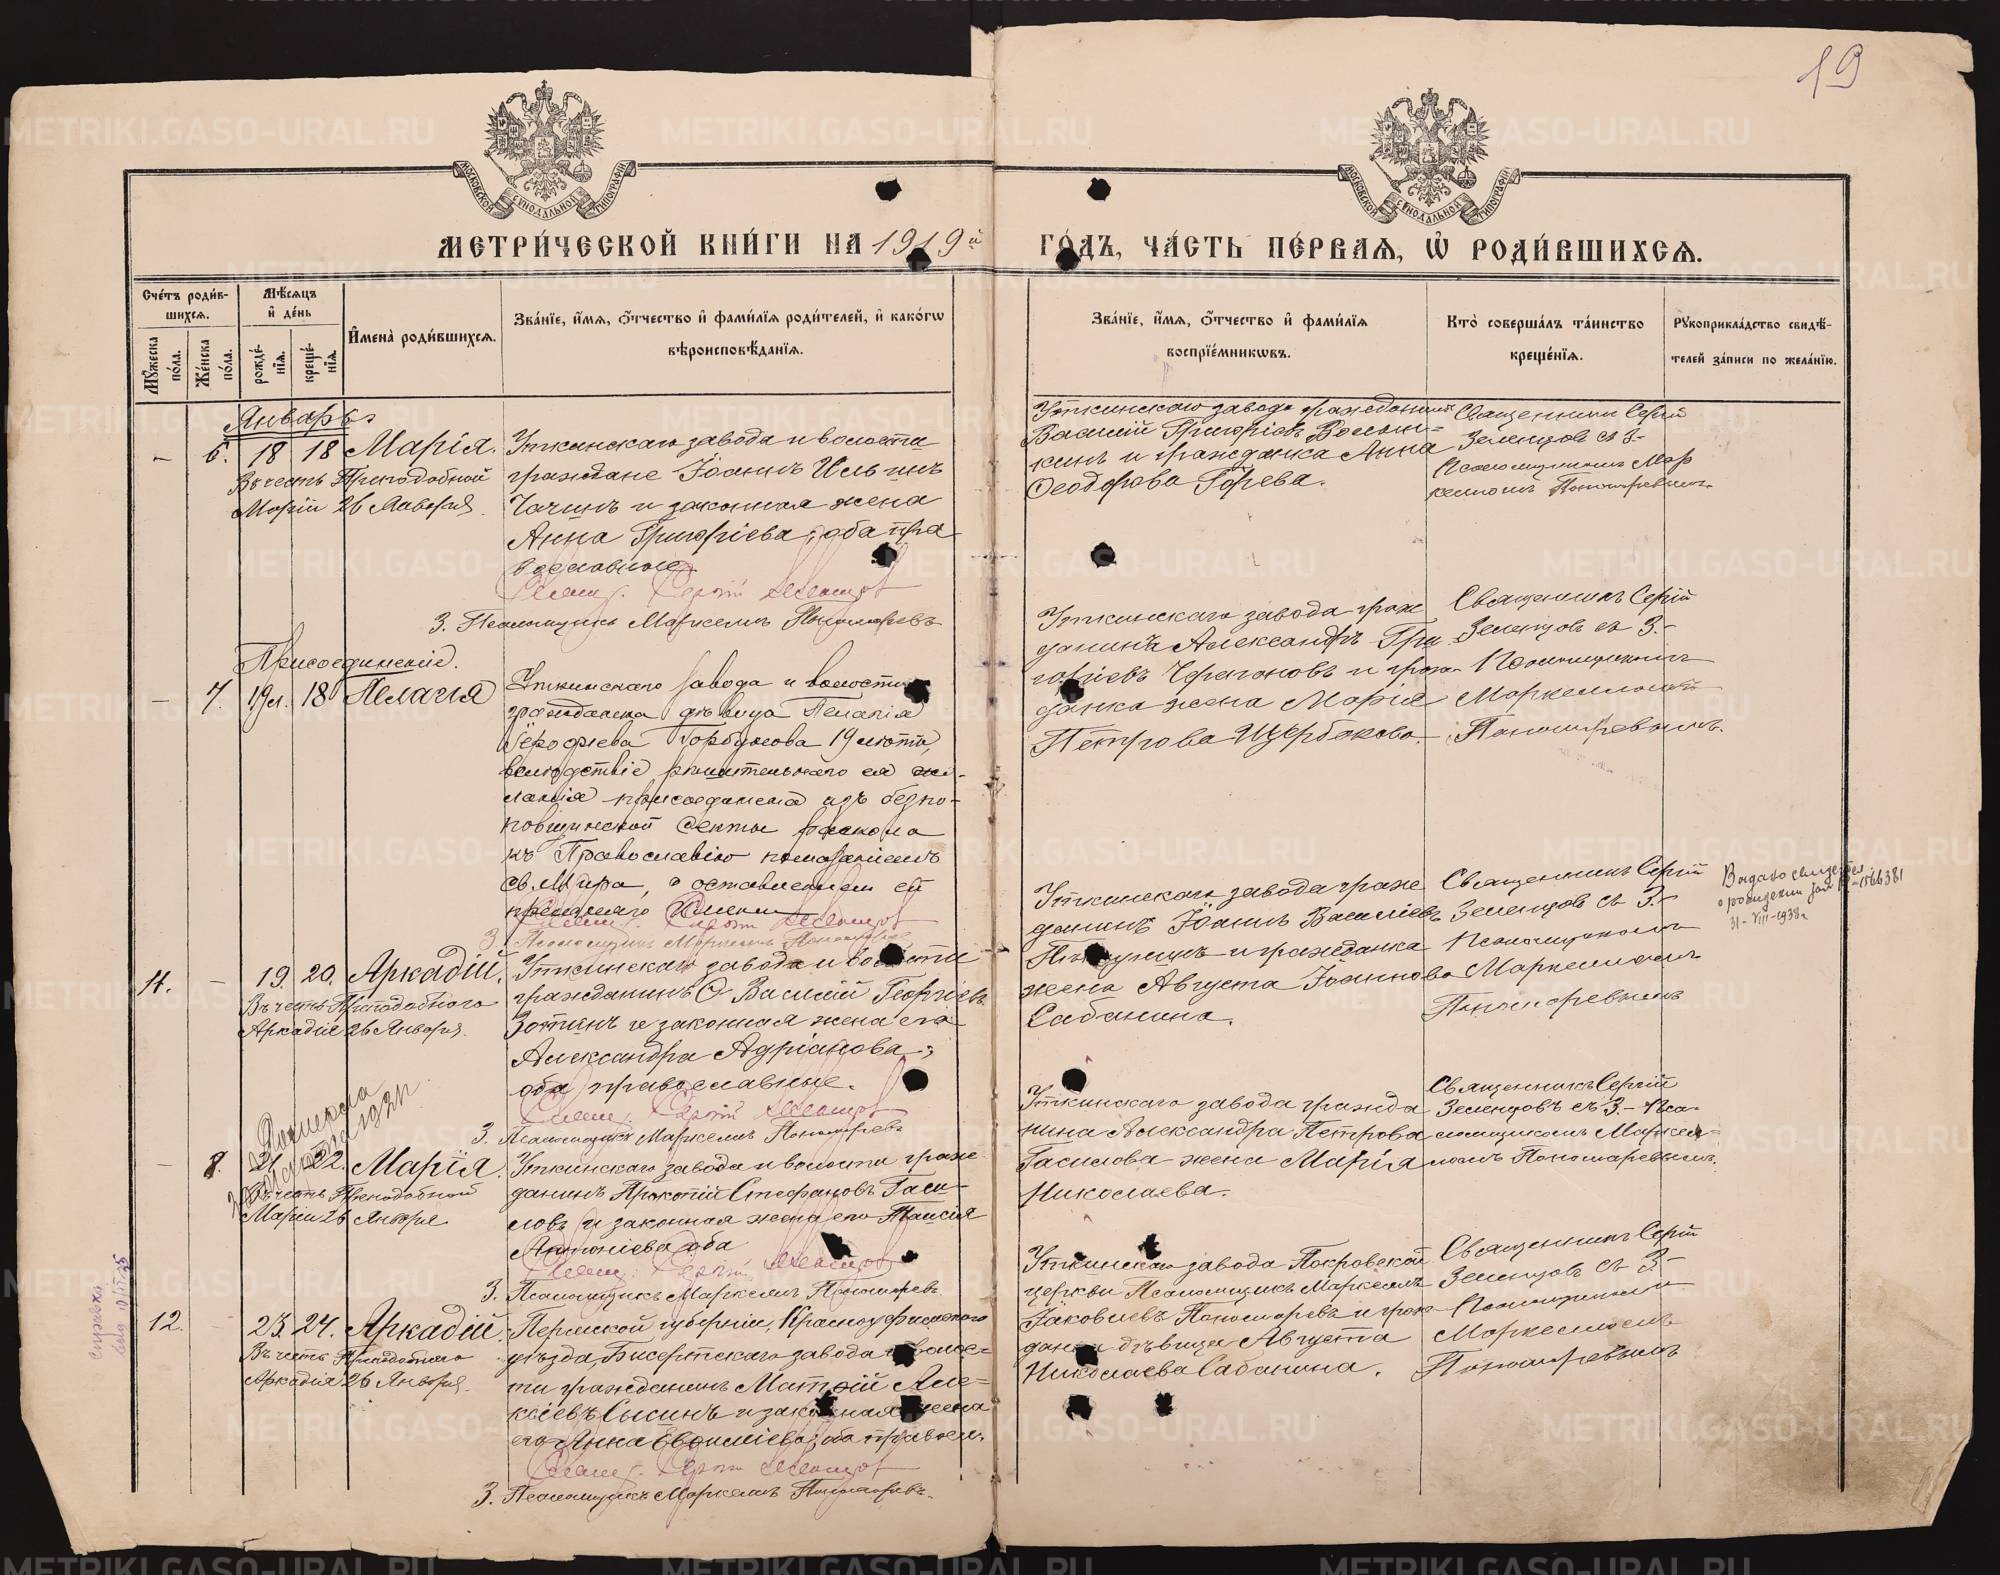 19
МОСКОВСКОЙ СѴНОДАЛЬНОЙ ТИПОГРАФІИ
МОСКОВСКОЙ СѴНОДАЛЬНОЙ ТИПОГРАФІИ
МЕТРИ́ЧЕСКОЙ КНИ́ГИ НА 1919й
ГО́ДЪ, ЧА́СТЬ ПЕ́РВАѦ, Ѡ҆ РОДИ́ВШИХСѦ.
Сче́тъ роди́в-
шихсѧ.
Мꙋ́жеска по́ла.
Же́нска по́ла.
Мѣ́сѧцъ
и҆ де́нь
рожде́-
нїѧ.
креще́-
нїѧ.
И҆мена̀ роди́вшихсѧ.
Зва́нїе, и҆́мѧ, ѻ҆́тчество и҆ фамѝлїѧ роди́телей, и҆ како́гѡ
вѣроисповѣ́данїѧ.
Зва́нїе, и҆́мѧ, ѻ҆́тчество и҆ фамѝлїѧ
воспрїе́мникѡвъ.
Кто̀ соверша́лъ та́инство
креще́нїѧ.
Рꙋкоприкла́дство свидѣ́-
телей за́писи по жела́нїю.
Январь
- 6. 18 18 Марія.
Въ честь Преподобной
Маріи 26 Января.
Уткинскаго завода и волости
граждане Іоаннъ Ильинъ
Чачинъ и законная жена
Анна Григоріева, оба пра-
вославные.
Свящ. Сергій Зеленцов
З. Псаломщикъ Маркеллъ Пономаревъ
Уткинскаго завода гражданинъ
Василій Григоріевъ
и гражданка Анна
Ѳеодорова Горева.
Священникъ Сергій
Зеленцовъ съ З.
Псаломщикомъ Мар
келломъ Пономаревымъ.
Присоединеніе.
- 7. 19л. 18 Пелагія
Уткинскаго завода и волости
гражданка дѣвица Пелагія
Іероѳеева Горбунова 19 лѣтъ,
вслѣдствіе рѣшительнаго ея же-
ланія присоединена изъ безпо-
повщинской секты раскола
къ Православію помазаніемъ
св. Мира, с оставленіем ей
прежняго имени
Свящ. Сергій Зеленцов
З. Псаломщикъ Маркеллъ Пономаревъ
Уткинскаго завода граж
данинъ Александръ Гри
горіевъ и граж
данка жена Марія
Петрова Щербакова.
Священникъ Сергій
Зеленцовъ съ З.-
Псаломщикомъ
Маркелломъ
Пономаревымъ.
11. - 19. 20. Аркадій.
Въ честь Преподобнаго
Аркадія 26 Января.
Уткинскаго завода и волости
гражданинъ Василій Георгіевъ
Зотинъ и законная жена его
Александра Адріанова;
оба православные.
Свящ. Сергій Зеленцов
З. Псаломщикъ Маркеллъ Пономаревъ
Уткинскаго завода граж
данинъ Іоаннъ Василіевъ
и гражданка
жена Августа Іоаннова
Сабанина.
Священникъ Сергій
Зеленцовъ съ З.-
Псаломщикомъ
Маркелломъ
Пономаревымъ
Выдано свидетел
о рождении за № 1566381
31-VIII-1938г
- 8. 21. 22. Марія.
Въ честь Преподобной
Маріи 26 Января
Уткинскаго завода и волости граж
данинъ Прокопій Стефановъ Гаси-
ловъ и законная жена его Таисія
Антоніева оба
Свящ. Сергій Зеленцов
З. Псаломщикъ Маркеллъ Пономаревъ
Уткинскаго завода гражда
нина Александра Петрова
Гасилова жена Марія
Николаева.
Священникъ Сергій
Зеленцовъ съ З.- Пса-
ломщикомъ Маркел-
ломъ Пономаревымъ.
справка
12. - 23. 24. Аркадій.
Въ честь Преподобнаго
Аркадія 26 Января.
Пермской губерніи, Красноуфимскаго
уѣзда, Бисертскаго завода и волос-
ти гражданинъ Матѳій Але-
ксіевъ Сысинъ и законная жена
его Анна оба правосл.
Свящ. Сергій Зеленцов
З. Псаломщикъ Маркеллъ Пономаревъ.
Уткинскаго завода Покровской
церкви Псаломщикъ Маркеллъ
Іаковлевъ Пономаревъ и граж
данка дѣвица Августа
Николаева Сабанина.
Священникъ Сергій
Зеленцовъ съ З.-
Псаломщикомъ
Маркелломъ
Пономаревымъ
METRIKI.GASO-URAL.RU